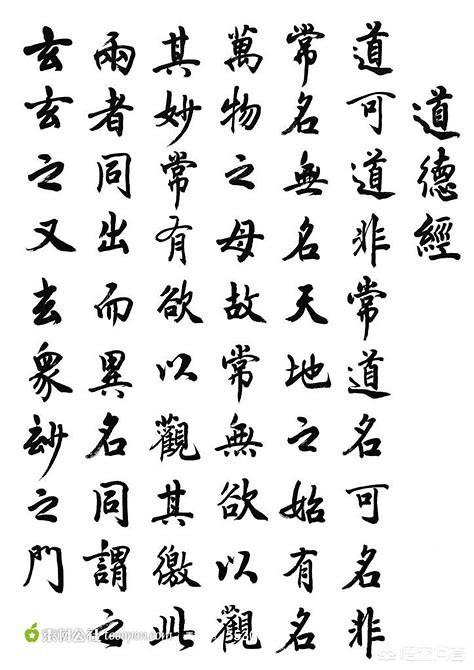 道德經
道可道非常道名可名非
常名無名天地之始有名
萬物之母故常無欲以觀
其妙常有欲以觀其徼此
兩者同出而異名同謂之
玄玄之又玄衆玅之門
素材公社
悟空问答